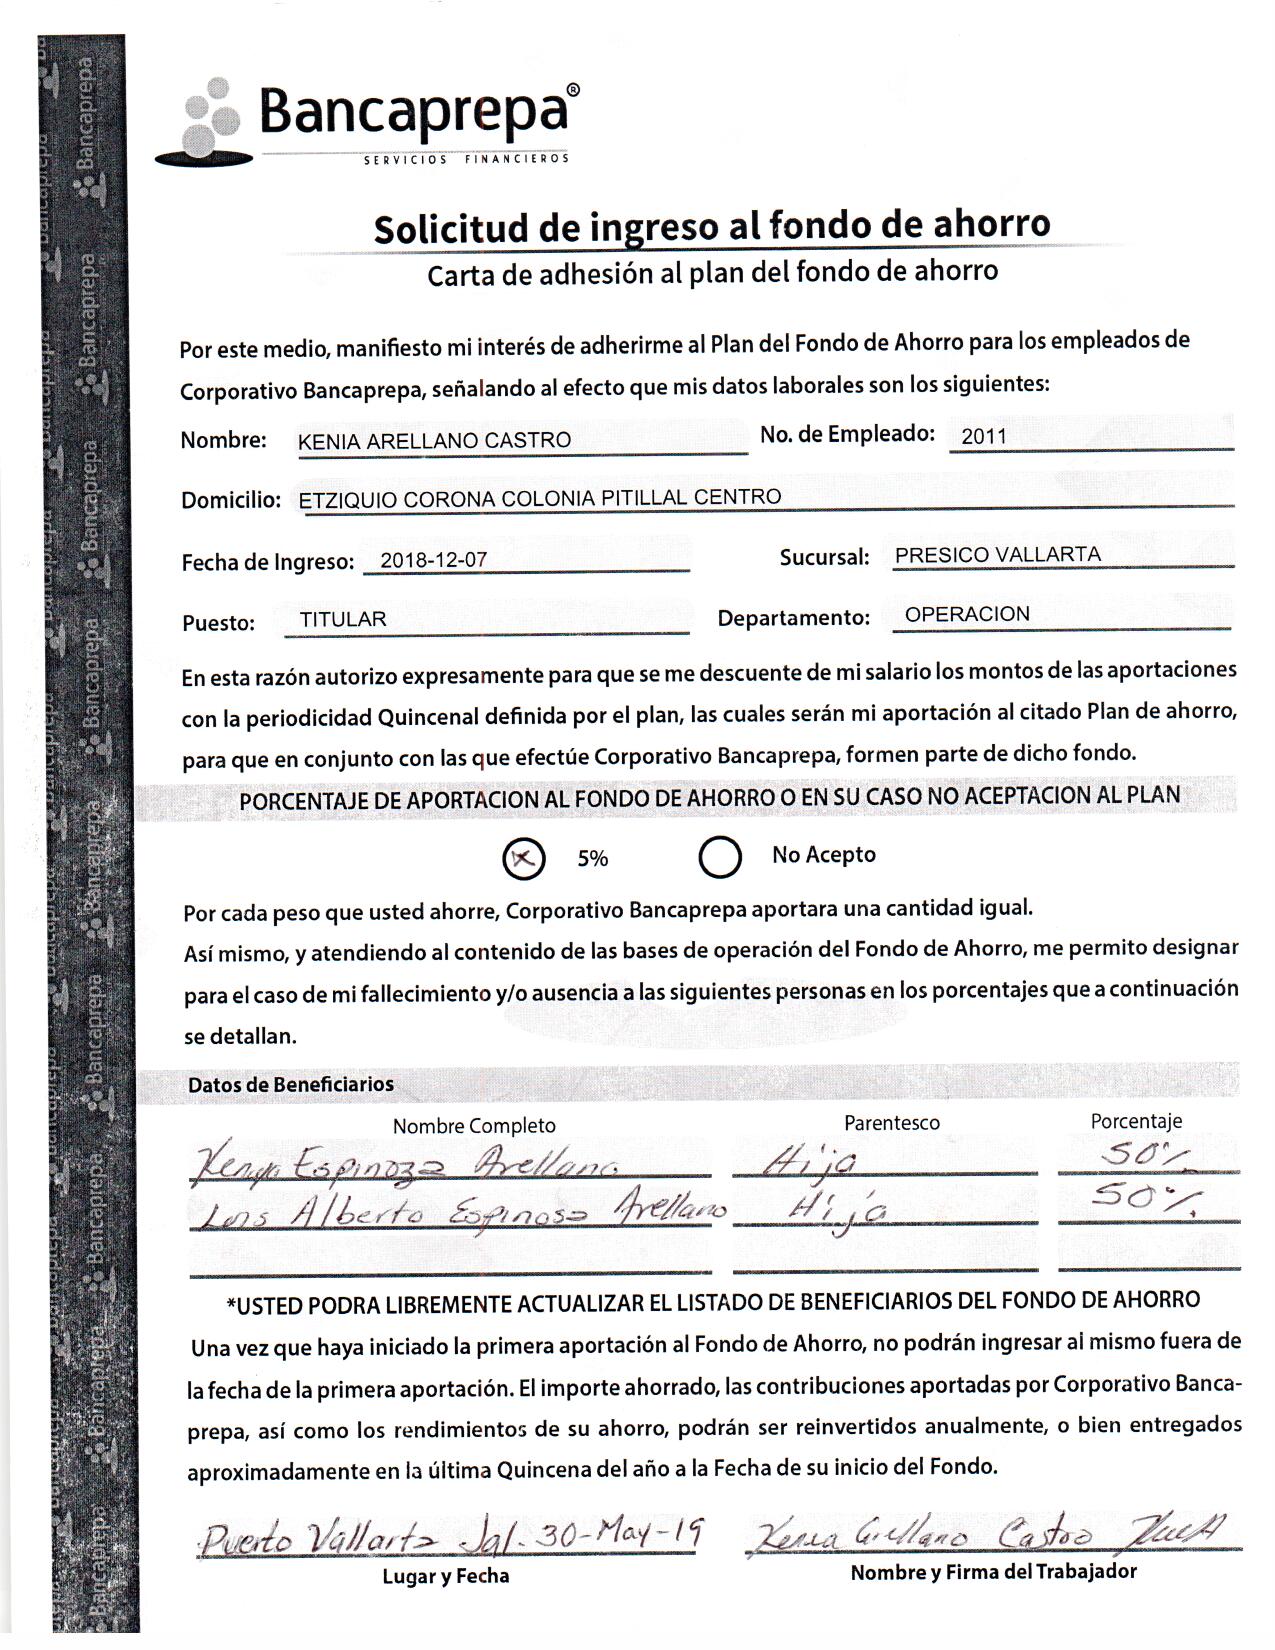 Bancaprepa®
SERVICIOS FINANCIEROS
Solicitud de ingreso al fondo de ahorro
Carta de adhesión al plan del fondo de ahorro
Por este medio, manifiesto mi interés de adherirme al Plan del Fondo de Ahorro para los empleados de
Corporativo Bancaprepa, señalando al efecto que mis datos laborales son los siguientes:
Nombre: KENIA ARELLANO CASTRO No. de Empleado: 2011
Domicilio: ETZIQUIO CORONA COLONIA PITILLAL CENTRO
Fecha de Ingreso: 2018-12-07 Sucursal: PRESICO VALLARTA
Puesto: TITULAR Departamento: OPERACION
En esta razón autorizo expresamente para que se me descuente de mi salario los montos de las aportaciones
con la periodicidad Quincenal definida por el plan, las cuales serán mi aportación al citado Plan de ahorro,
para que en conjunto con las que efectúe Corporativo Bancaprepa, formen parte de dicho fondo.
PORCENTAJE DE APORTACION AL FONDO DE AHORRO O EN SU CASO NO ACEPTACION AL PLAN
5% No Acepto
Por cada peso que usted ahorre, Corporativo Bancaprepa aportara una cantidad igual.
Así mismo, y atendiendo al contenido de las bases de operación del Fondo de Ahorro, me permito designar
para el caso de mi fallecimiento y/o ausencia a las siguientes personas en los porcentajes que a continuación
se detallan.
Datos de Beneficiarios
Nombre Completo Parentesco Porcentaje
Espinoza Arellano Hija 50%
Luis Alberto Espinosa Arellano 50%
*USTED PODRA LIBREMENTE ACTUALIZAR EL LISTADO DE BENEFICIARIOS DEL FONDO DE AHORRO
Una vez que haya iniciado la primera aportación al Fondo de Ahorro, no podrán ingresar al mismo fuera de
la fecha de la primera aportación. El importe ahorrado, las contribuciones aportadas por Corporativo Banca-
prepa, así como los rendimientos de su ahorro, podrán ser reinvertidos anualmente, o bien entregados
aproximadamente en la última Quincena del año a la Fecha de su inicio del Fondo.
Puerto Vallarta Jal. 30-May-19 Kenia Arellano Castro
Lugar y Fecha Nombre y Firma del Trabajador